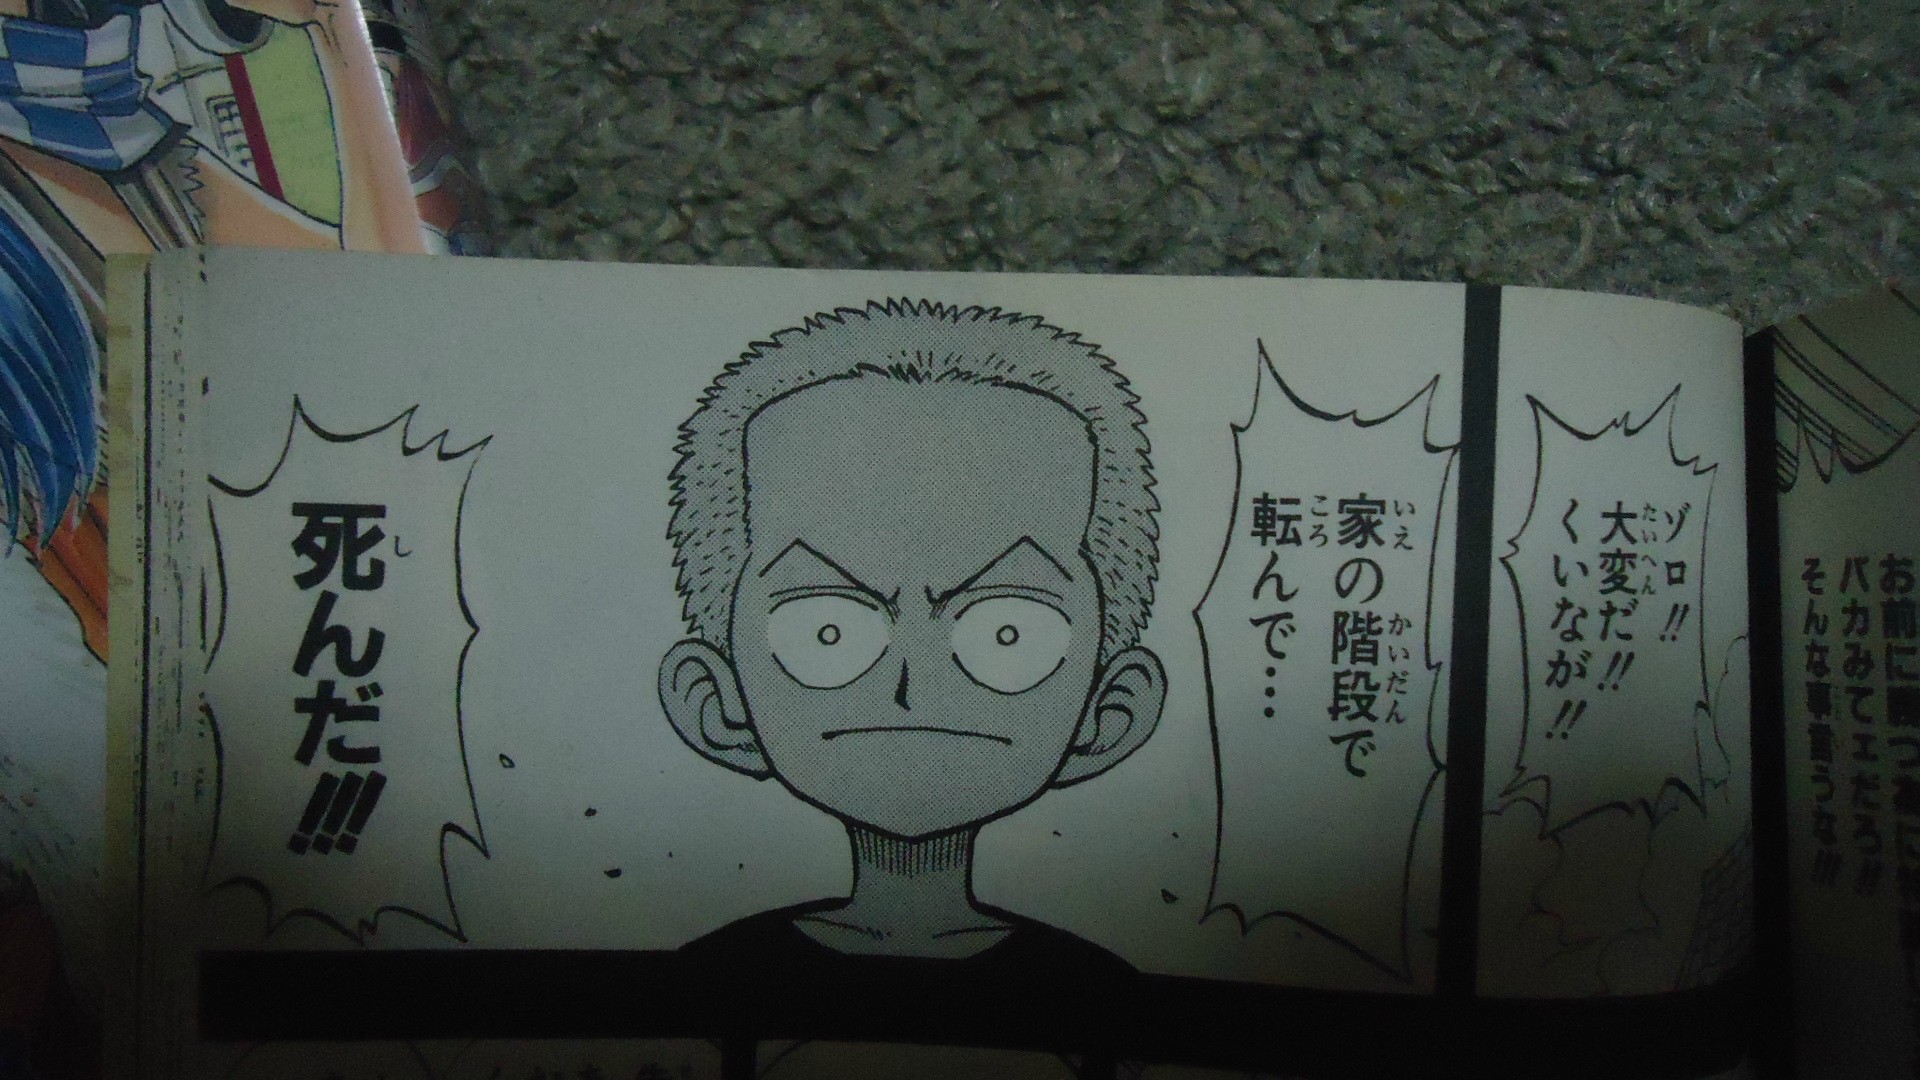 お前に
バカみてェだろ!!
そんな事言うな!!!
ゾロ!!
大変だ!!
くいなが!!
家の階段で
転んで…
死んだ!!!